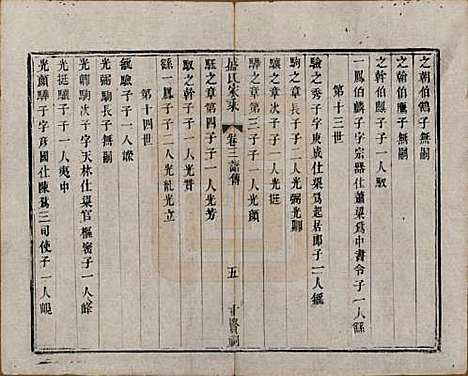 之朝伯鶴子無嗣
之翰伯鷹子無嗣
之幹伯鸞子子一人馭
一鳳伯麟子字宗器仕蕭梁為中書令子一人餘
第十三世
驗之秀子字東成仕梁為起居郎子一人
駒之章長子子二人光弼光
驤之章次子子一人光挺
驊之章第三子子一人光顔
駐之章第四子子一人光芳
馭之幹子子一人光
一鳳子子二人光 光立
氏家乘
卷三
五
十賢祠
第十四世
驗子子一人
光弼駒長子無嗣
光 駒次子字天林仕梁官樞密子一人峰
光挺驤子子一人夷中
光顔驊子字彥國仕陳為三司使子一人峴